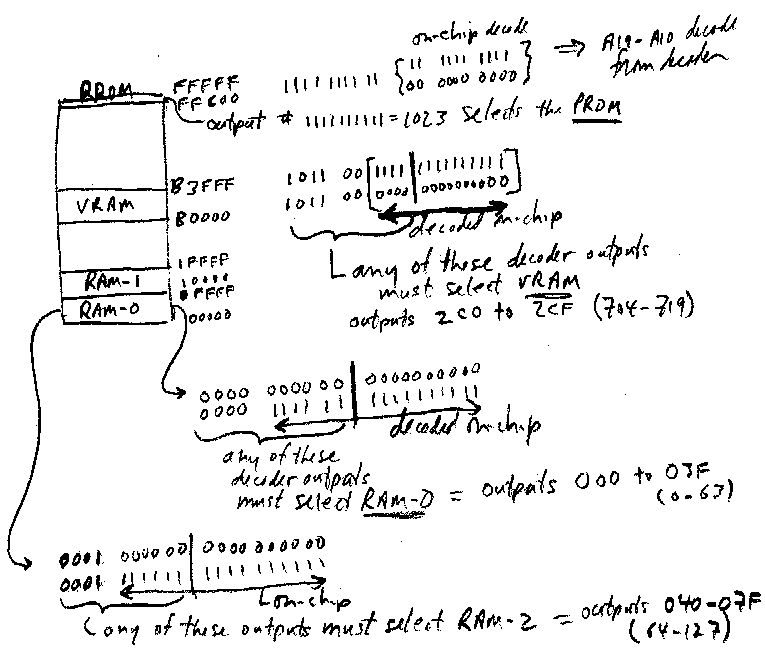 on-chip decode
11 1111 1111
00 0000 0000
⇒ A19-A10 decode
from decoder
PROM
FFFFF
FFC00
1111 1111 11
output # 1111111111 = 1023 selects the PROM
B3FFF
VRAM
B0000
1011 00 1111 1111111111
1011 00 0000 0000000000
decoded on-chip
any of these decoder outputs
must select VRAM
outputs 2C0 to 2CF (704-719)
1FFFF
RAM-1
10000
0FFFF
RAM-0
00000
0000 0000 00 0000000000
0000 1111 11 1111111111
decoded on-chip
any of these
decoder outputs
must select RAM-0 = outputs 000 to 03F
(0-63)
0001 000000 0000000000
0001 111111 1111111111
on-chip
any of these outputs must select RAM-2 = outputs 040-07F
(64-127)